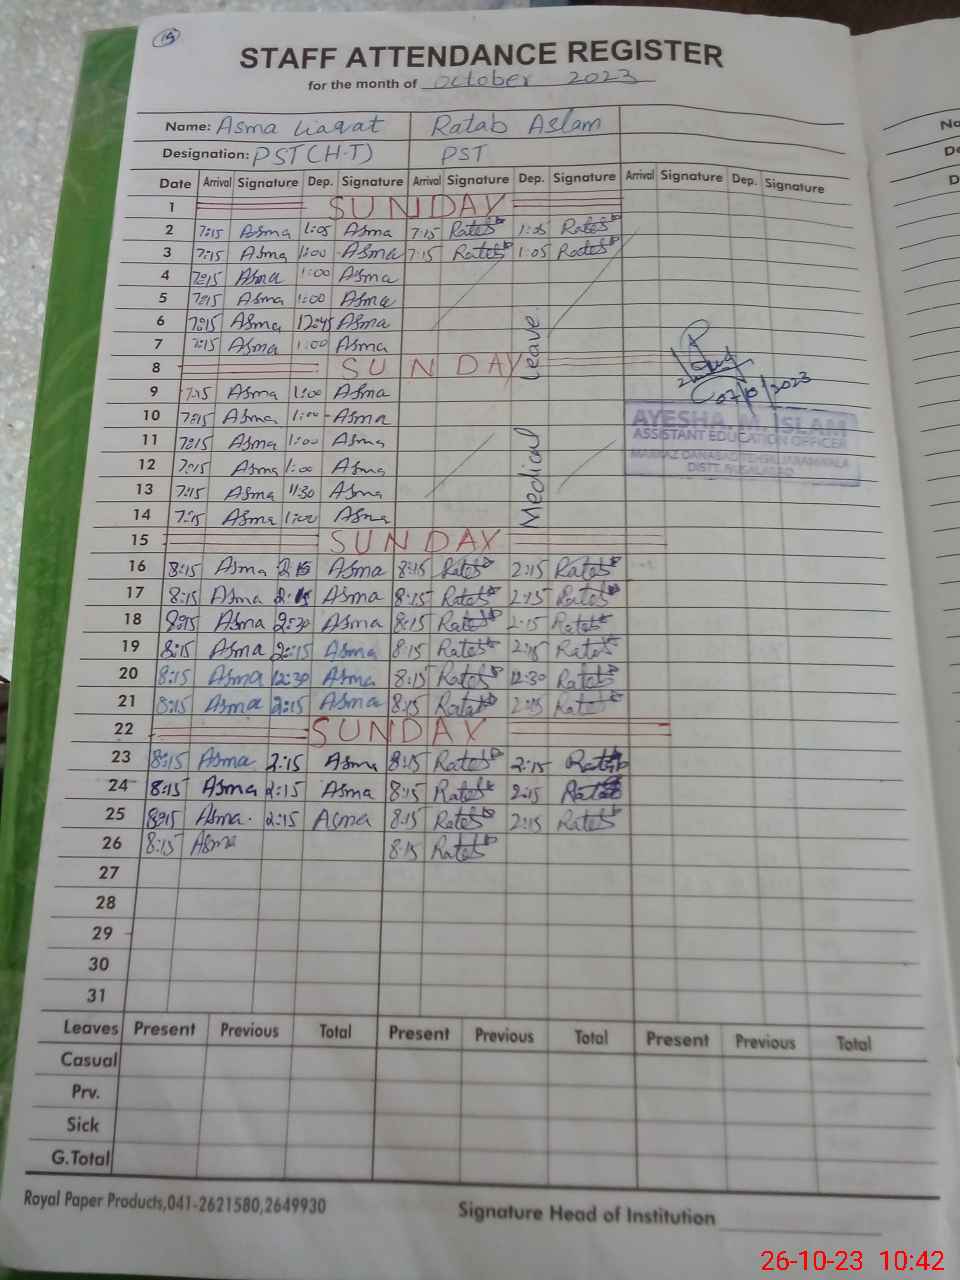 15
STAFF ATTENDANCE REGISTER
for the month of October 2023
Name: Asma Liaqat Ratab Aslam
Designation: PST (H.T) PST
Date Arrival Signature Dep. Signature Arrival Signature Dep. Signature Arrival Signature Dep. Signature
1 SUNDAY
2 7:15 Asma 1:05 Asma 7:15 Ratab 1:05 Ratab
3 7:15 Asma 1:00 Asma 7:15 Ratab 1:05 Ratab
4 7:15 Asma 1:00 Asma
5 7:15 Asma 1:00 Asma
6 7:15 Asma 12:45 Asma
7 7:15 Asma 1:00 Asma
8 SUNDAY
9 7:15 Asma 1:00 Asma
10 7:15 Asma 1:00 Asma
11 7:15 Asma 1:00 Asma
12 7:15 Asma 1:00 Asma
13 7:15 Asma 11:30 Asma
14 7:15 Asma 1:00 Asma
Medical Leave.
/2023
AYESHA. M. ISLAM
ASSISTANT EDUCATION OFFICER
15 SUNDAY
16 8:15 Asma 2:15 Asma 8:15 Ratab 2:15 Ratab
17 8:15 Asma 2:15 Asma 8:15 Ratab 2:15 Ratab
18 8:15 Asma 2:30 Asma 8:15 Ratab 2:15 Ratab
19 8:15 Asma 2:15 Asma 8:15 Ratab 2:15 Ratab
20 8:15 Asma 12:30 Asma 8:15 Ratab 12:30 Ratab
21 8:15 Asma 2:15 Asma 8:15 Ratab 2:15 Ratab
22 SUNDAY
23 8:15 Asma 2:15 Asma 8:15 Ratab 2:15 Ratab
24 8:15 Asma 2:15 Asma 8:15 Ratab 2:15 Ratab
25 8:15 Asma. 2:15 Asma 8:15 Ratab 2:15 Ratab
26 8:15 Asma 8:15 Ratab
27
28
29
30
31
Leaves Present Previous Total Present Previous Total Present Previous Total
Casual
Prv.
Sick
G.Total
Royal Paper Products,041-2621580,2649930
Signature Head of Institution
26-10-23 10:42